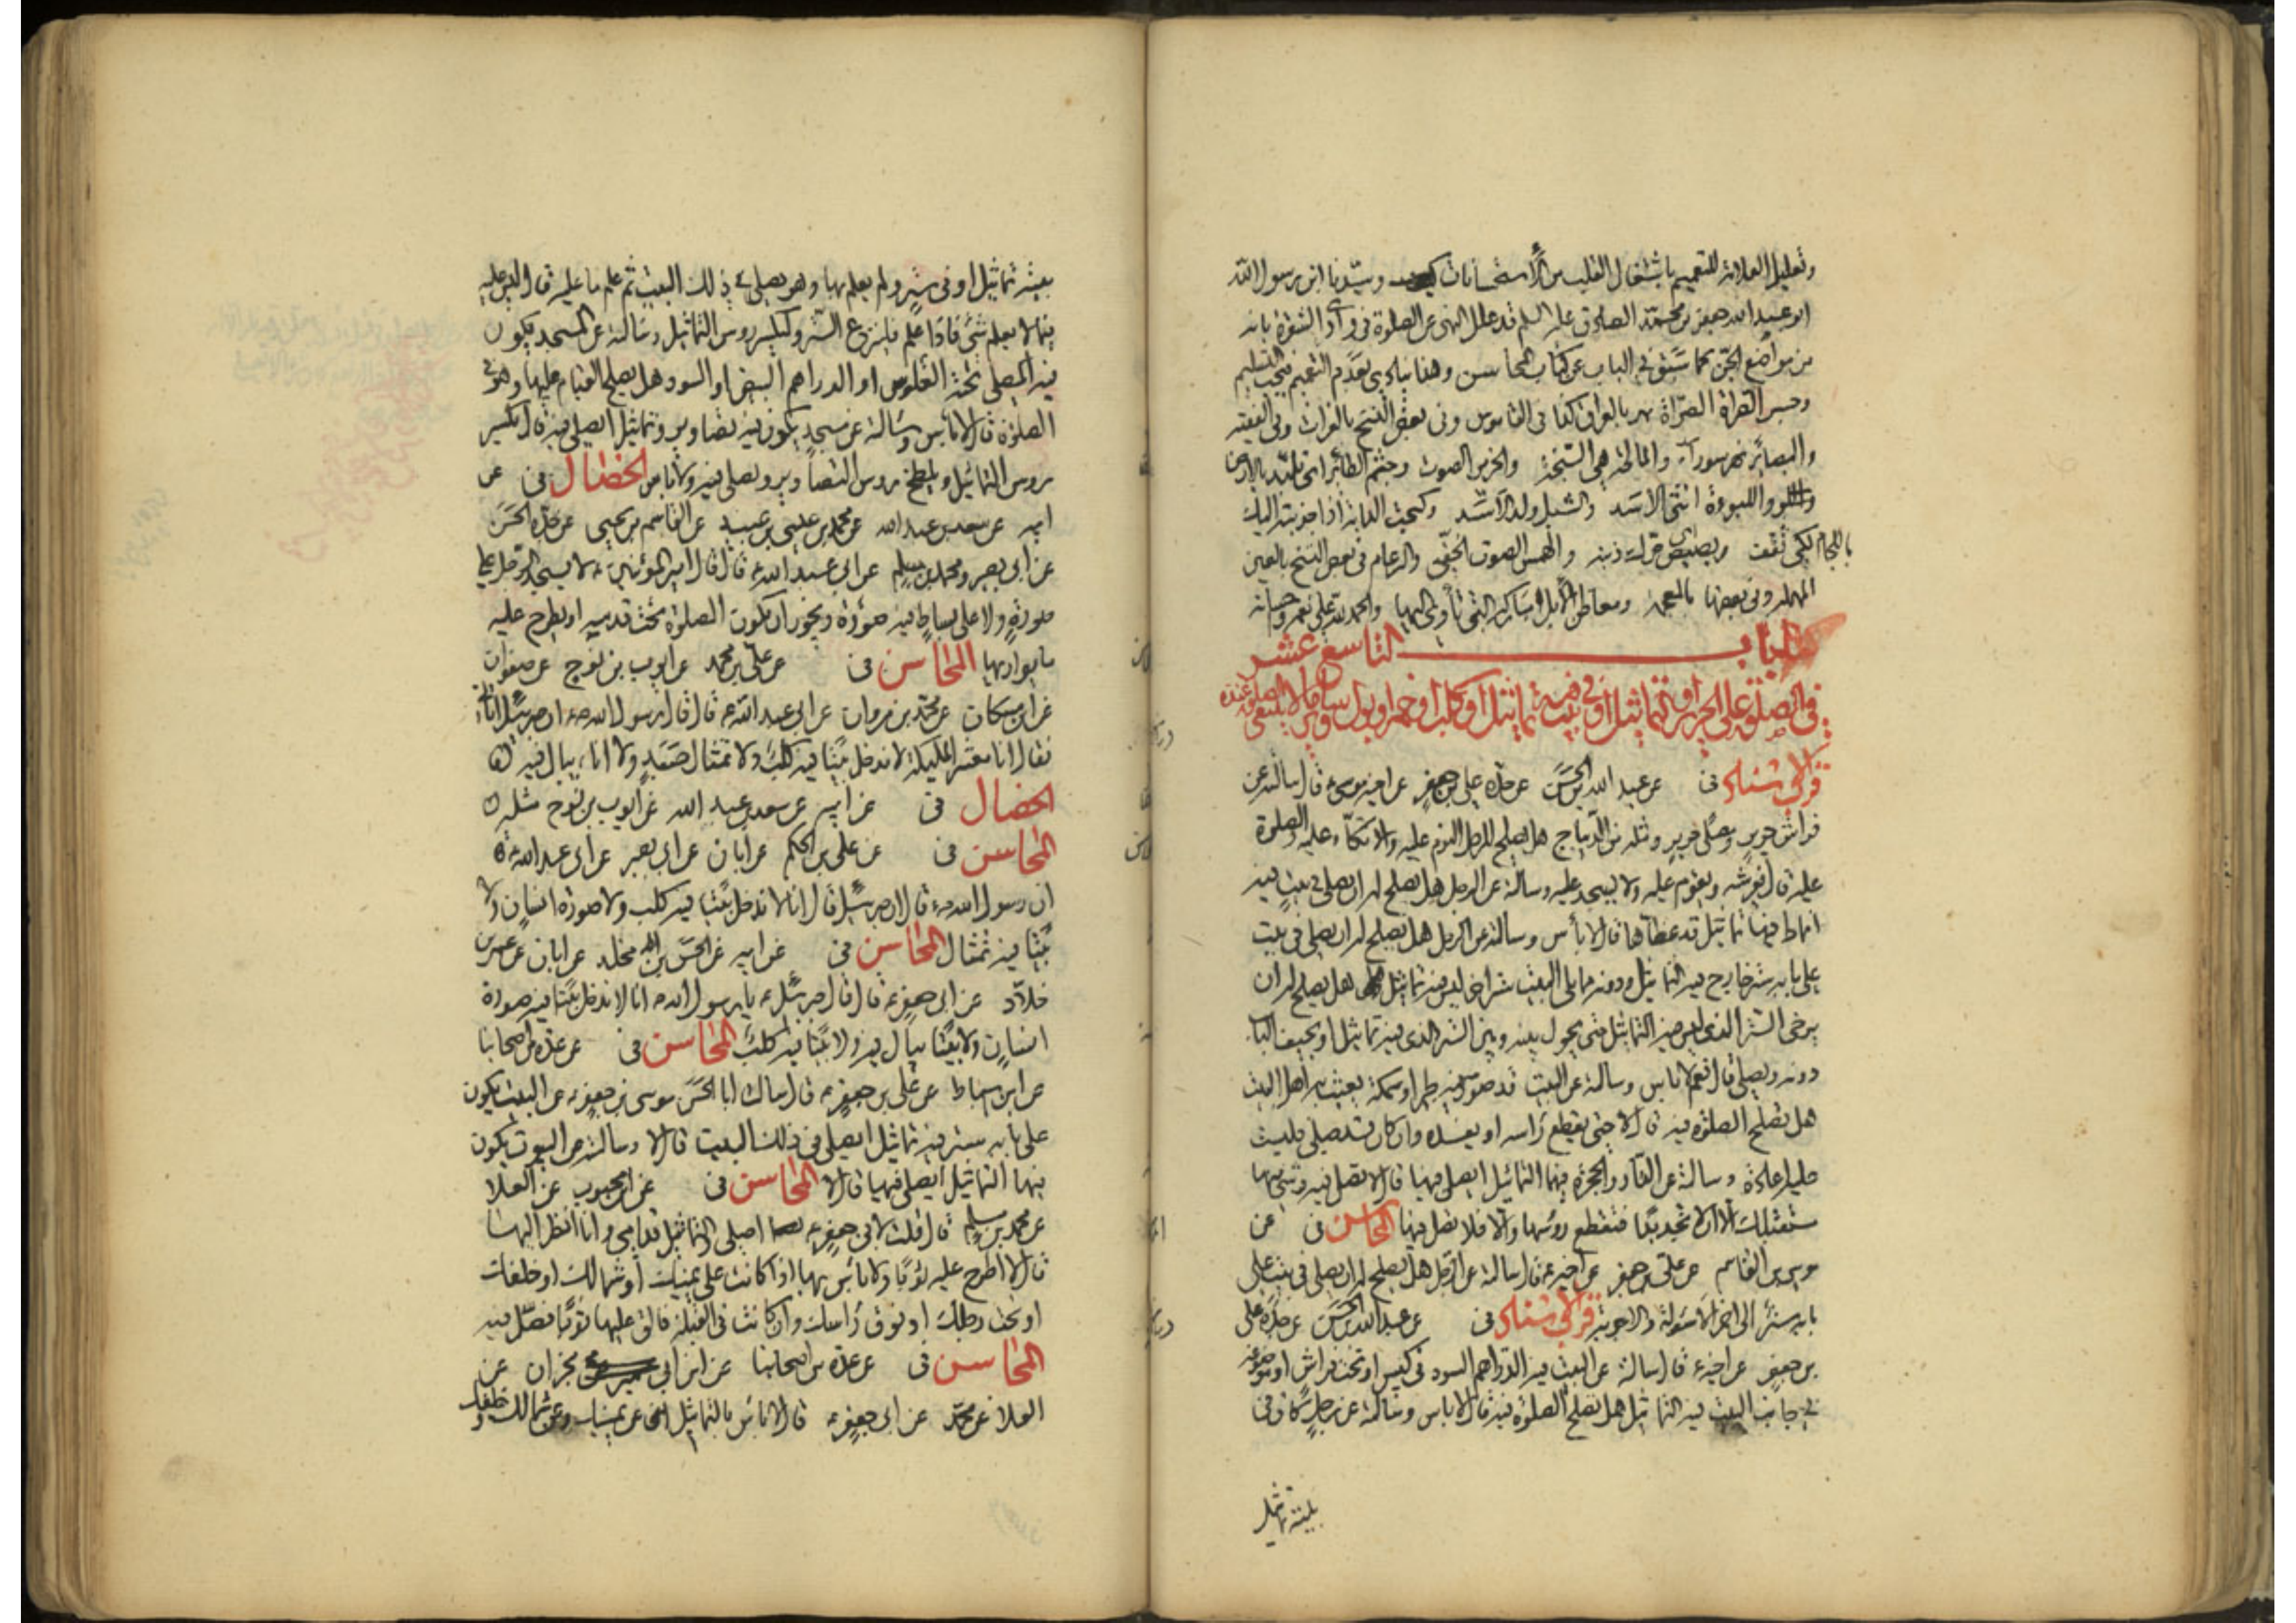 وتعليل العلامة للتعميم باشتغال القلب من الاستحسانات وسيدنا ابن رسول الله
ابو عبد الله جعفر بن محمد الصادق عليه السلم قد علل النهى عن الصلوة فى وادى الشقرة بانه
من مواضع الجن كما سبق فى الباب عن كتاب المحاسن وهذا ينادى بعدم التعميم فيجب التسليم
وحسر الفراة الصراة نهر بالعراق كذا فى القاموس وفى بعض النسخ بالفرات وفى الفقيه
والبصائر نهر سورآء والمالحة هى السبخة والخرير الصوت وجثم الطائر اى تلبد بالارض
واللبوءة انثى الاسد والشبل ولد الاسد وكبحت الدابة اذا جذبته اليك
باللجام لكى تقف وبصبص حرك ذنبه والهمس الصوت الخفى والرغام فى بعض النسخ بالعين
المهملة وفى بعضها بالمعجمة ومعاطن الابل مباركها التى تأوى اليها والحمد لله على نعمه واحسانه
الباب التاسع عشر
فى الصلوة على الحرير او تماثيل او فى بيت فيه تماثيل او كلب او خمر او بول
قرب الاسناد فى عن عبد الله بن الحسن عن جده على بن جعفر عن اخيه موسى ع قال سالته عن
فراش حرير ومصلى حرير ومثله من الديباج هل يصلح للرجل النوم عليه والاتكآء عليه والصلوة
عليه قال يفرشه ويقوم عليه ولا يسجد عليه وسالته عن الرجل هل يصلح له ان يصلى فى بيت فيه
انماط فيها تماثيل قد غطاها قال لا بأس وسالته عن الرجل هل يصلح له ان يصلى فى بيت
على بابه ستر خارج فيه التماثيل ودونه مما يلى البيت ستر اخر ليس فيه تماثيل هل يصلح له ان
يرخى الستر الذى ليس فيه التماثيل حتى يحول بينه وبين الستر الذى فيه تماثيل او يجيف الباب
دونه ويصلى قال نعم لا باس وسالته عن البيت قد صور فيه طير او سمكة يعبث به اهل البيت
هل تصلح الصلوة فيه قال لا حتى يقطع رأسه او يفسده وان كان قد صلى فليست
عليه اعادة وسالته عن الدار والحجرة فيها التماثيل ايصلى فيها قال لا تصل فيها وشىء منها
مستقبلك الا ان لا تجد بدا فتقطع رؤسها والا فلا تصل فيها المحاسن فى عن
موسى بن القاسم عن على بن جعفر عن اخيه ع قال سالته عن الرجل هل يصلح له ان يصلى فى بيت على
بابه ستر الى اخر الاسئولة والاجوبة قرب الاسناد فى عن عبد الله بن الحسن عن جده على
بن جعفر عن اخيه ع قال سالته عن البيت فيه الدراهم السود فى كيس او تحت فراش او موضوعة
فى جانب البيت فيه التماثيل هل تصلح الصلوة فيه قال لا باس وسالته عن رجل كان فى
بيته تماثيل
بيته تماثيل او فى ستر ولم يعلم بها وهو يصلى فى ذلك البيت ثم علم ما عليه قال ليس عليه
فيما لا يعلم شئ فاذا علم فلينزع الستر وليكسر روس التماثيل وسالته عن المسجد يكون
فيه المصلى تحته الفلوس او الدراهم البيض او السود هل يصلح القيام عليها وهو فى
الصلوة قال لا بأس وسالته عن مسجد يكون فيه تصاوير وتماثيل ايصلى فيه قال تكسر
روس التماثيل ويلطخ روس التصاوير ويصلى فيه ولا باس الخصال فى عن
ابيه عن سعد بن عبد الله عن محمد بن عيسى بن عبيد عن القاسم بن يحيى عن جده الحسن
عن ابى بصير ومحمد بن مسلم عن ابى عبد الله ع قال قال امير المؤمنين ع لا يسجد الرجل على
صورة ولا على بساط فيه صورة ويجوز ان تكون الصلوة تحت قدميه او يطرح عليه
ما يواريها المحاسن فى عن على بن محمد عن ايوب بن نوح عن صفوان
عن ابن مسكان عن محمد بن مروان عن ابى عبد الله ع قال قال رسول الله ص ان جبرئيل اتانى
فقال انا معشر الملئكة لا ندخل بيتا فيه كلب ولا تمثال جسد ولا اناء يبال فيه
الخصال فى عن ابيه عن سعد بن عبد الله عن ايوب بن نوح مثله
المحاسن فى عن على بن الحكم عن ابان عن ابى بصير عن ابى عبد الله ع
ان رسول الله ص قال ان جبرئيل قال انا لا ندخل بيتا فيه كلب ولا صورة انسان ولا
بيتا فيه تمثال المحاسن فى عن ابيه عن الحسن بن مخلد عن ابان عن عمرو بن
خلاد عن ابى جعفر ع قال قال جبرئيل ع يا رسول الله ص انا لا ندخل بيتا فيه صورة
انسان ولا بيتا يبال فيه ولا بيتا فيه كلب المحاسن فى عن عدة من اصحابنا
عن ابن اسباط عن على بن جعفر ع قال سالت ابا الحسن موسى بن جعفر ع عن البيت يكون
على بابه ستر فيه تماثيل ايصلى فى ذلك البيت قال لا وسالته عن البيوت يكون
فيها التماثيل ايصلى فيها قال لا المحاسن فى عن ابن محبوب عن العلا
عن محمد بن مسلم قال قلت لابى جعفر ع اصلى والتماثيل قدامى وانا انظر اليها
قال لا اطرح عليه ثوبا ولا بأس بها اذا كانت على يمينك او شمالك او خلفك
او تحت رجلك او فوق رأسك وان كانت فى القبلة فالق عليها ثوبا فصل فيه
المحاسن فى عن عدة من اصحابنا عن ابن ابى نجران عن
العلا عن محمد عن ابى جعفر ع قال لا باس بالتماثيل ان تكون عن يمينك وعن شمالك وخلفك